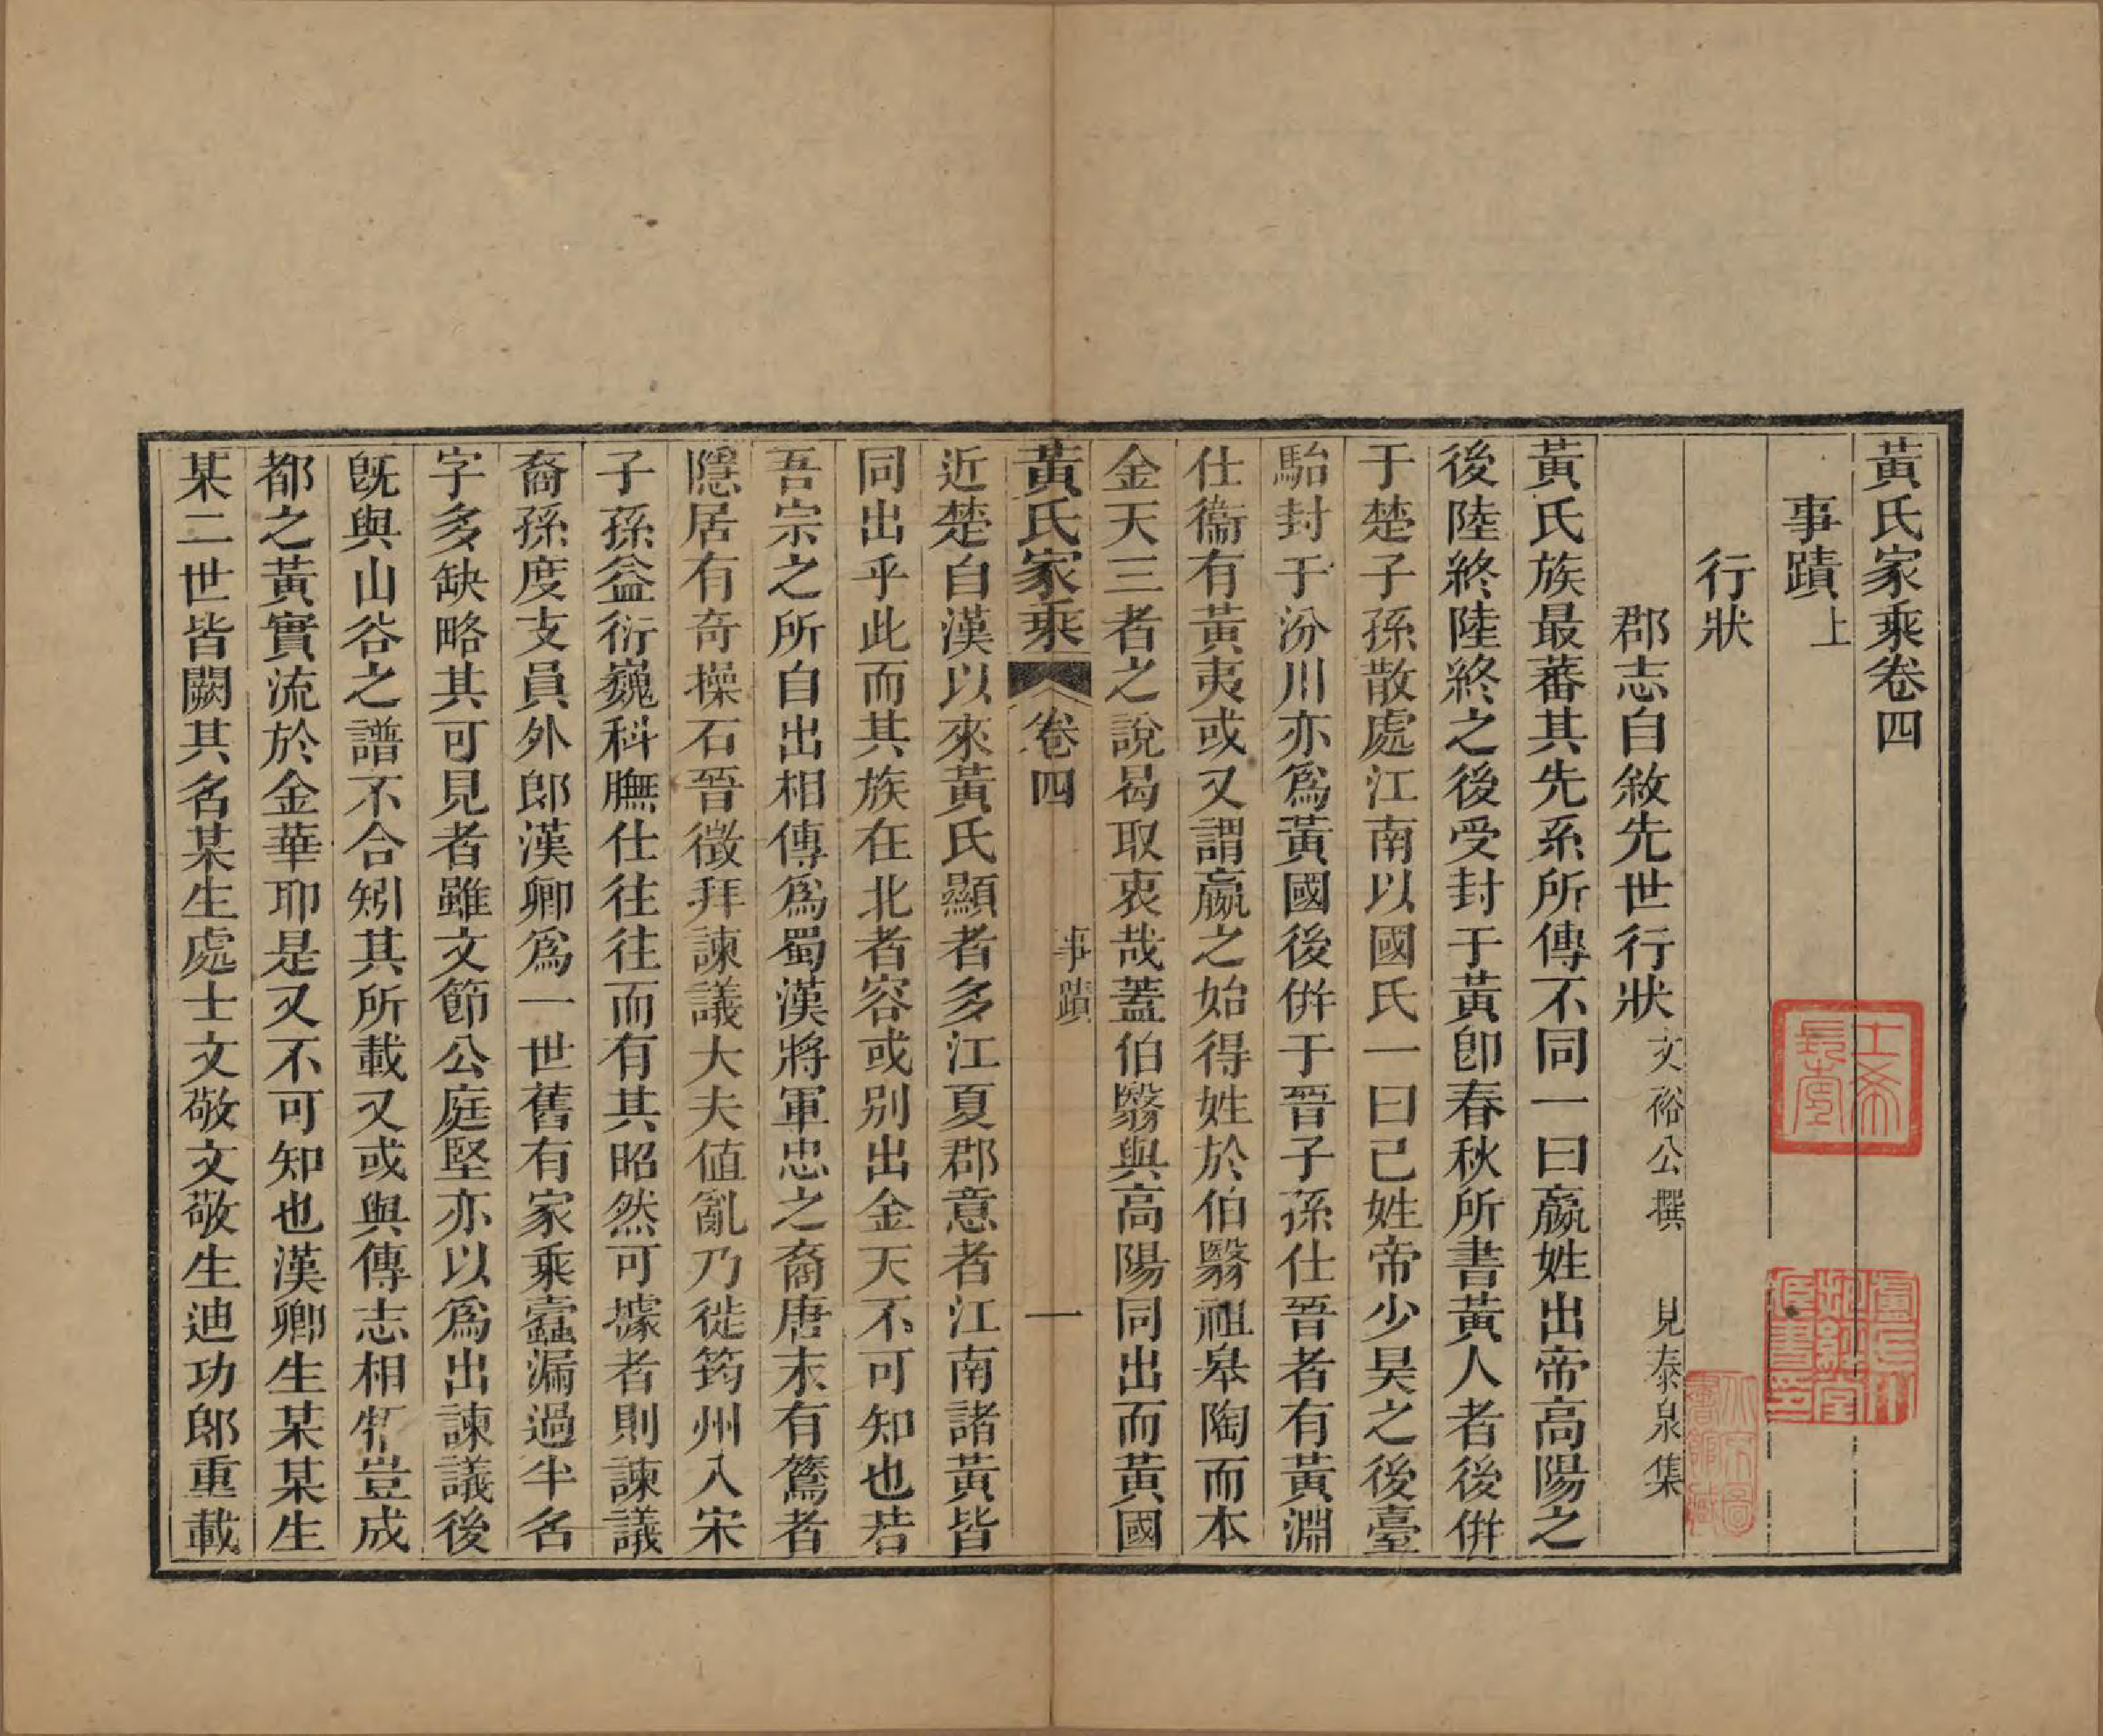 黃氏家乘卷四
事蹟上
行狀
郡志自敘先世行狀 文裕公撰 見泰泉集
黃氏族最蕃其先系所傳不同一曰嬴姓出帝高陽之
後陸終陸終之後受封于黃卽春秋所書黃人者後併
于楚子孫散處江南以國氏一曰己姓帝少昊之後臺
駘封于汾川亦爲黃國後併于晉子孫仕晉者有黃淵
仕衞有黃夷或又謂嬴之始得姓於伯翳祖皋陶而本
金天三者之說曷取衷哉蓋伯翳與高陽同出而黃國
黃氏家乘 卷四 事蹟 一
近楚自漢以來黃氏顯者多江夏郡意者江南諸黃皆
同出乎此而其族在北者容或別出金天不可知也若
吾宗之所自出相傳爲蜀漢將軍忠之裔唐末有篤者
隱居有奇操石晉徵拜諫議大夫值亂乃徙筠州入宋
子孫益衍巍科膴仕往往而有其昭然可據者則諫議
裔孫度支員外郎漢卿爲一世舊有家乘蠹漏過半名
字多缺略其可見者雖文節公庭堅亦以爲出諫議後
旣與山谷之譜不合矧其所載又或與傳志相牾豈成
都之黃實流於金華耶是又不可知也漢卿生某某生
某二世皆闕其名某生處士文敬文敬生迪功郎重載